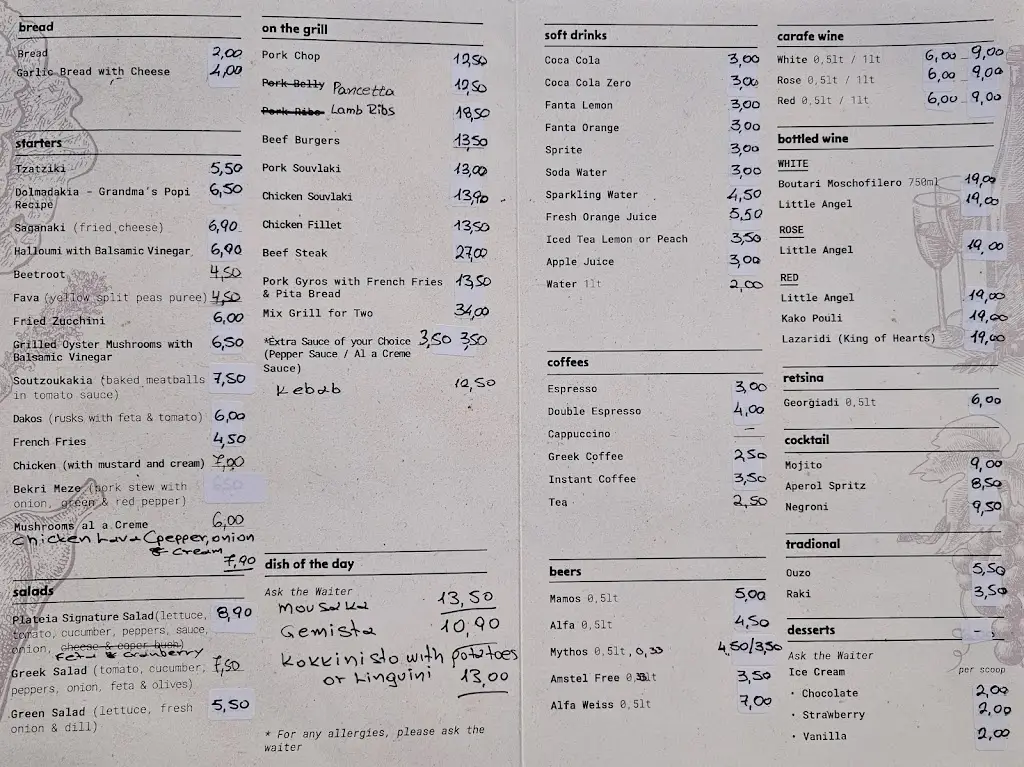 bread
Bread 2,00
Garlic Bread with Cheese 4,00
starters
Tzatziki 5,50
Dolmadakia - Grandma's Popi 6,50
Recipe
Saganaki (fried cheese) 6,90
Halloumi with Balsamic Vinegar 6,90
Beetroot 4,50
Fava (yellow split peas puree) 4,50
Fried Zucchini 6,00
Grilled Oyster Mushrooms with 6,50
Balsamic Vinegar
Soutzoukakia (baked meatballs 7,50
in tomato sauce)
Dakos (rusks with feta & tomato) 6,00
French Fries 4,50
Chicken (with mustard and cream) 7,90
Bekri Meze (pork stew with
onion, green & red pepper)
Mushrooms al a Creme 6,00
Chicken (pepper, onion
& cream
7,90
salads
Plateia Signature Salad(lettuce, 8,90
tomato, cucumber, peppers, sauce,
onion, cheese & caper bush)
Feta & Cranberry
Greek Salad (tomato, cucumber, 7,50
peppers, onion, feta & olives)
Green Salad (lettuce, fresh 5,50
onion & dill)
on the grill
Pork Chop 12,50
Pork Belly Pancetta 12,50
Pork Ribs Lamb Ribs 18,50
Beef Burgers 13,50
Pork Souvlaki 13,00
Chicken Souvlaki 13,90
Chicken Fillet 13,50
Beef Steak 27,00
Pork Gyros with French Fries 13,50
& Pita Bread
Mix Grill for Two 34,00
*Extra Sauce of your Choice 3,50 3,50
(Pepper Sauce / Al a Creme
Sauce)
Kebab 12,50
dish of the day
Ask the Waiter
Mousaka 13,50
Gemista 10,90
Kokkinisto with potatoes
or Linguini 13,00
* For any allergies, please ask the
waiter
soft drinks
Coca Cola 3,00
Coca Cola Zero 3,00
Fanta Lemon 3,00
Fanta Orange 3,00
Sprite 3,00
Soda Water 3,00
Sparkling Water 4,50
Fresh Orange Juice 5,50
Iced Tea Lemon or Peach 3,50
Apple Juice 3,00
Water 1lt 2,00
coffees
Espresso 3,00
Double Espresso 4,00
Cappuccino —
Greek Coffee 2,50
Instant Coffee 3,50
Tea 2,50
beers
Mamos 0,5lt 5,00
Alfa 0,5lt 4,50
Mythos 0,5lt, 0,33 4,50/3,50
Amstel Free 3,50
Alfa Weiss 0,5lt 7,00
carafe wine
White 0,5lt / 1lt 6,00 9,00
Rose 0,5lt / 1lt 6,00 9,00
Red 0,5lt / 1lt 6,00 9,00
bottled wine
WHITE
Boutari Moschofilero 750ml 19,00
Little Angel 19,00
ROSE
Little Angel 19,00
RED
Little Angel 19,00
Kako Pouli 19,00
Lazaridi (King of Hearts) 19,00
retsina
Georgiadi 0,5lt 6,00
cocktail
Mojito 9,00
Aperol Spritz 8,50
Negroni 9,50
tradional
Ouzo 5,50
Raki 3,50
desserts -
Ask the Waiter
Ice Cream per scoop
• Chocolate 2,00
• Strawberry 2,00
• Vanilla 2,00